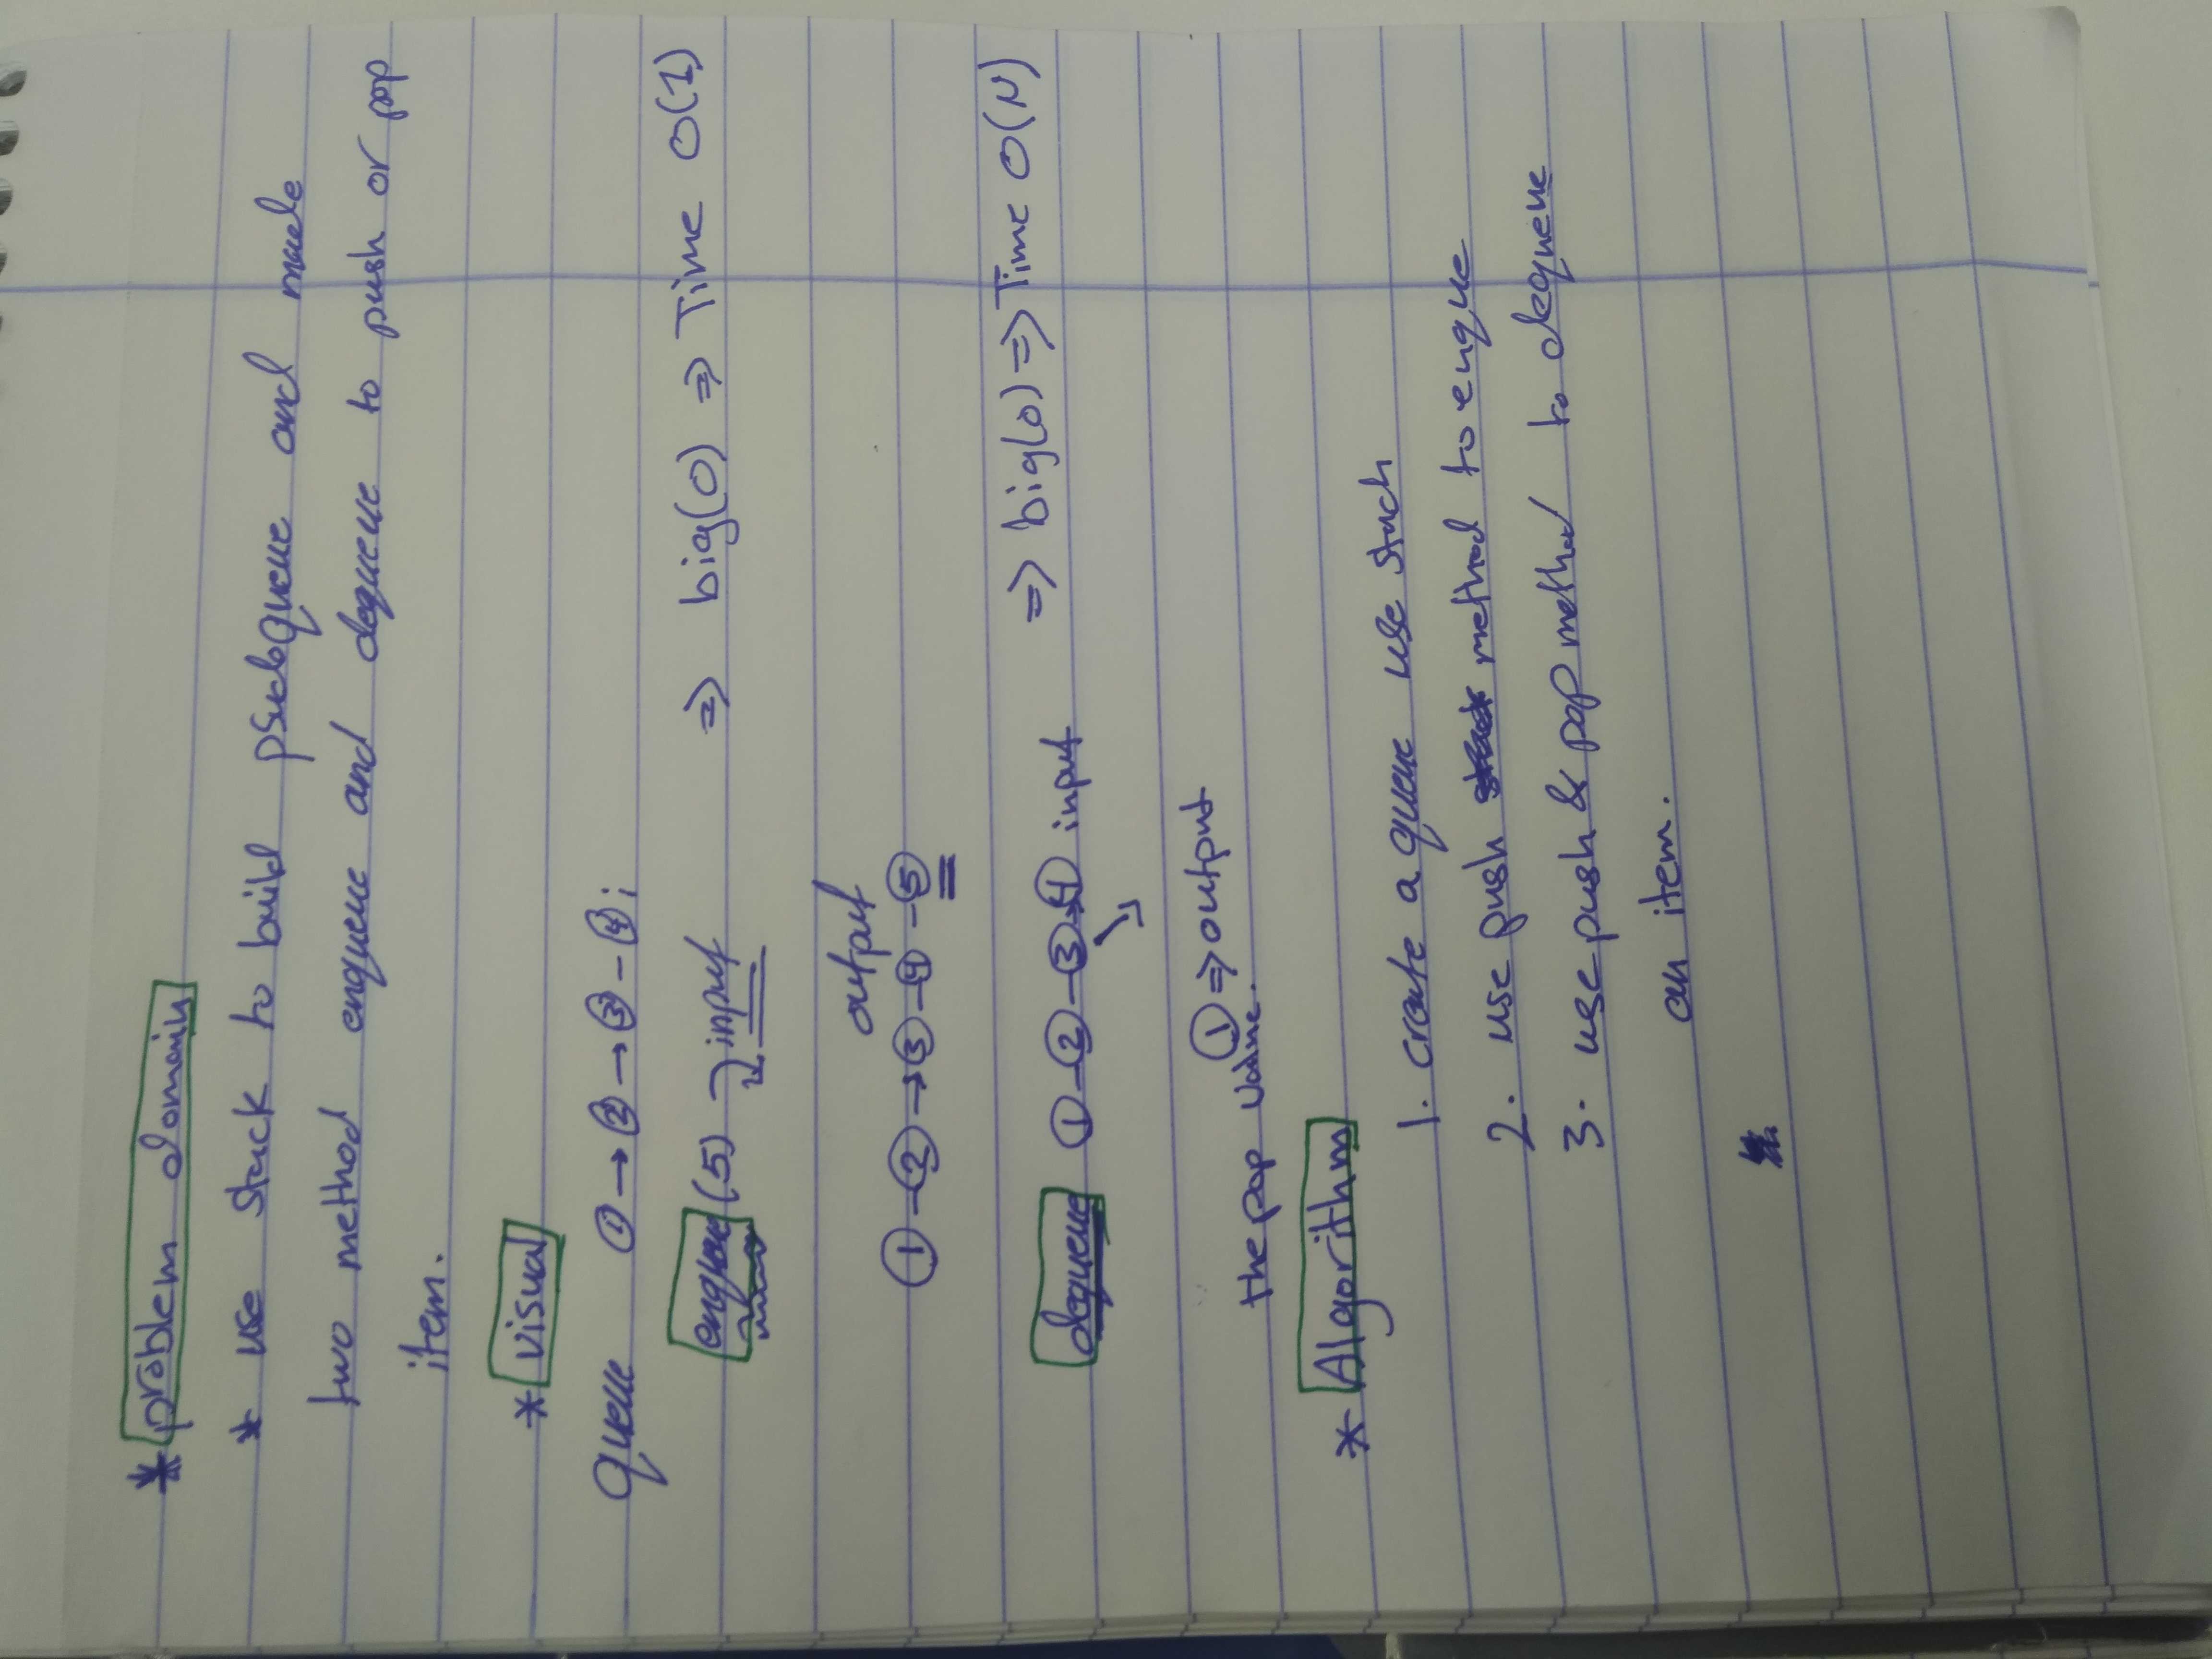 * problem domain
* use stack to build psudoqueue and made
two method enqueue and dequeue to push or pop
item.
* visual
queue ① → ② → ③ - ④ ;
enqueue (5) → input ⇒ big(O) ⇒ Time O(1)
output
① - ② → ③ - ④ - ⑤
dequeue ① - ② - ③ → ④ input ⇒ big(o) ⇒ Time O(N)
① ⇒ output
the pop value.
* Algorithm
1. create a queue use stack
2. use push method to enque
3. use push & pop method to dequeue
an item.